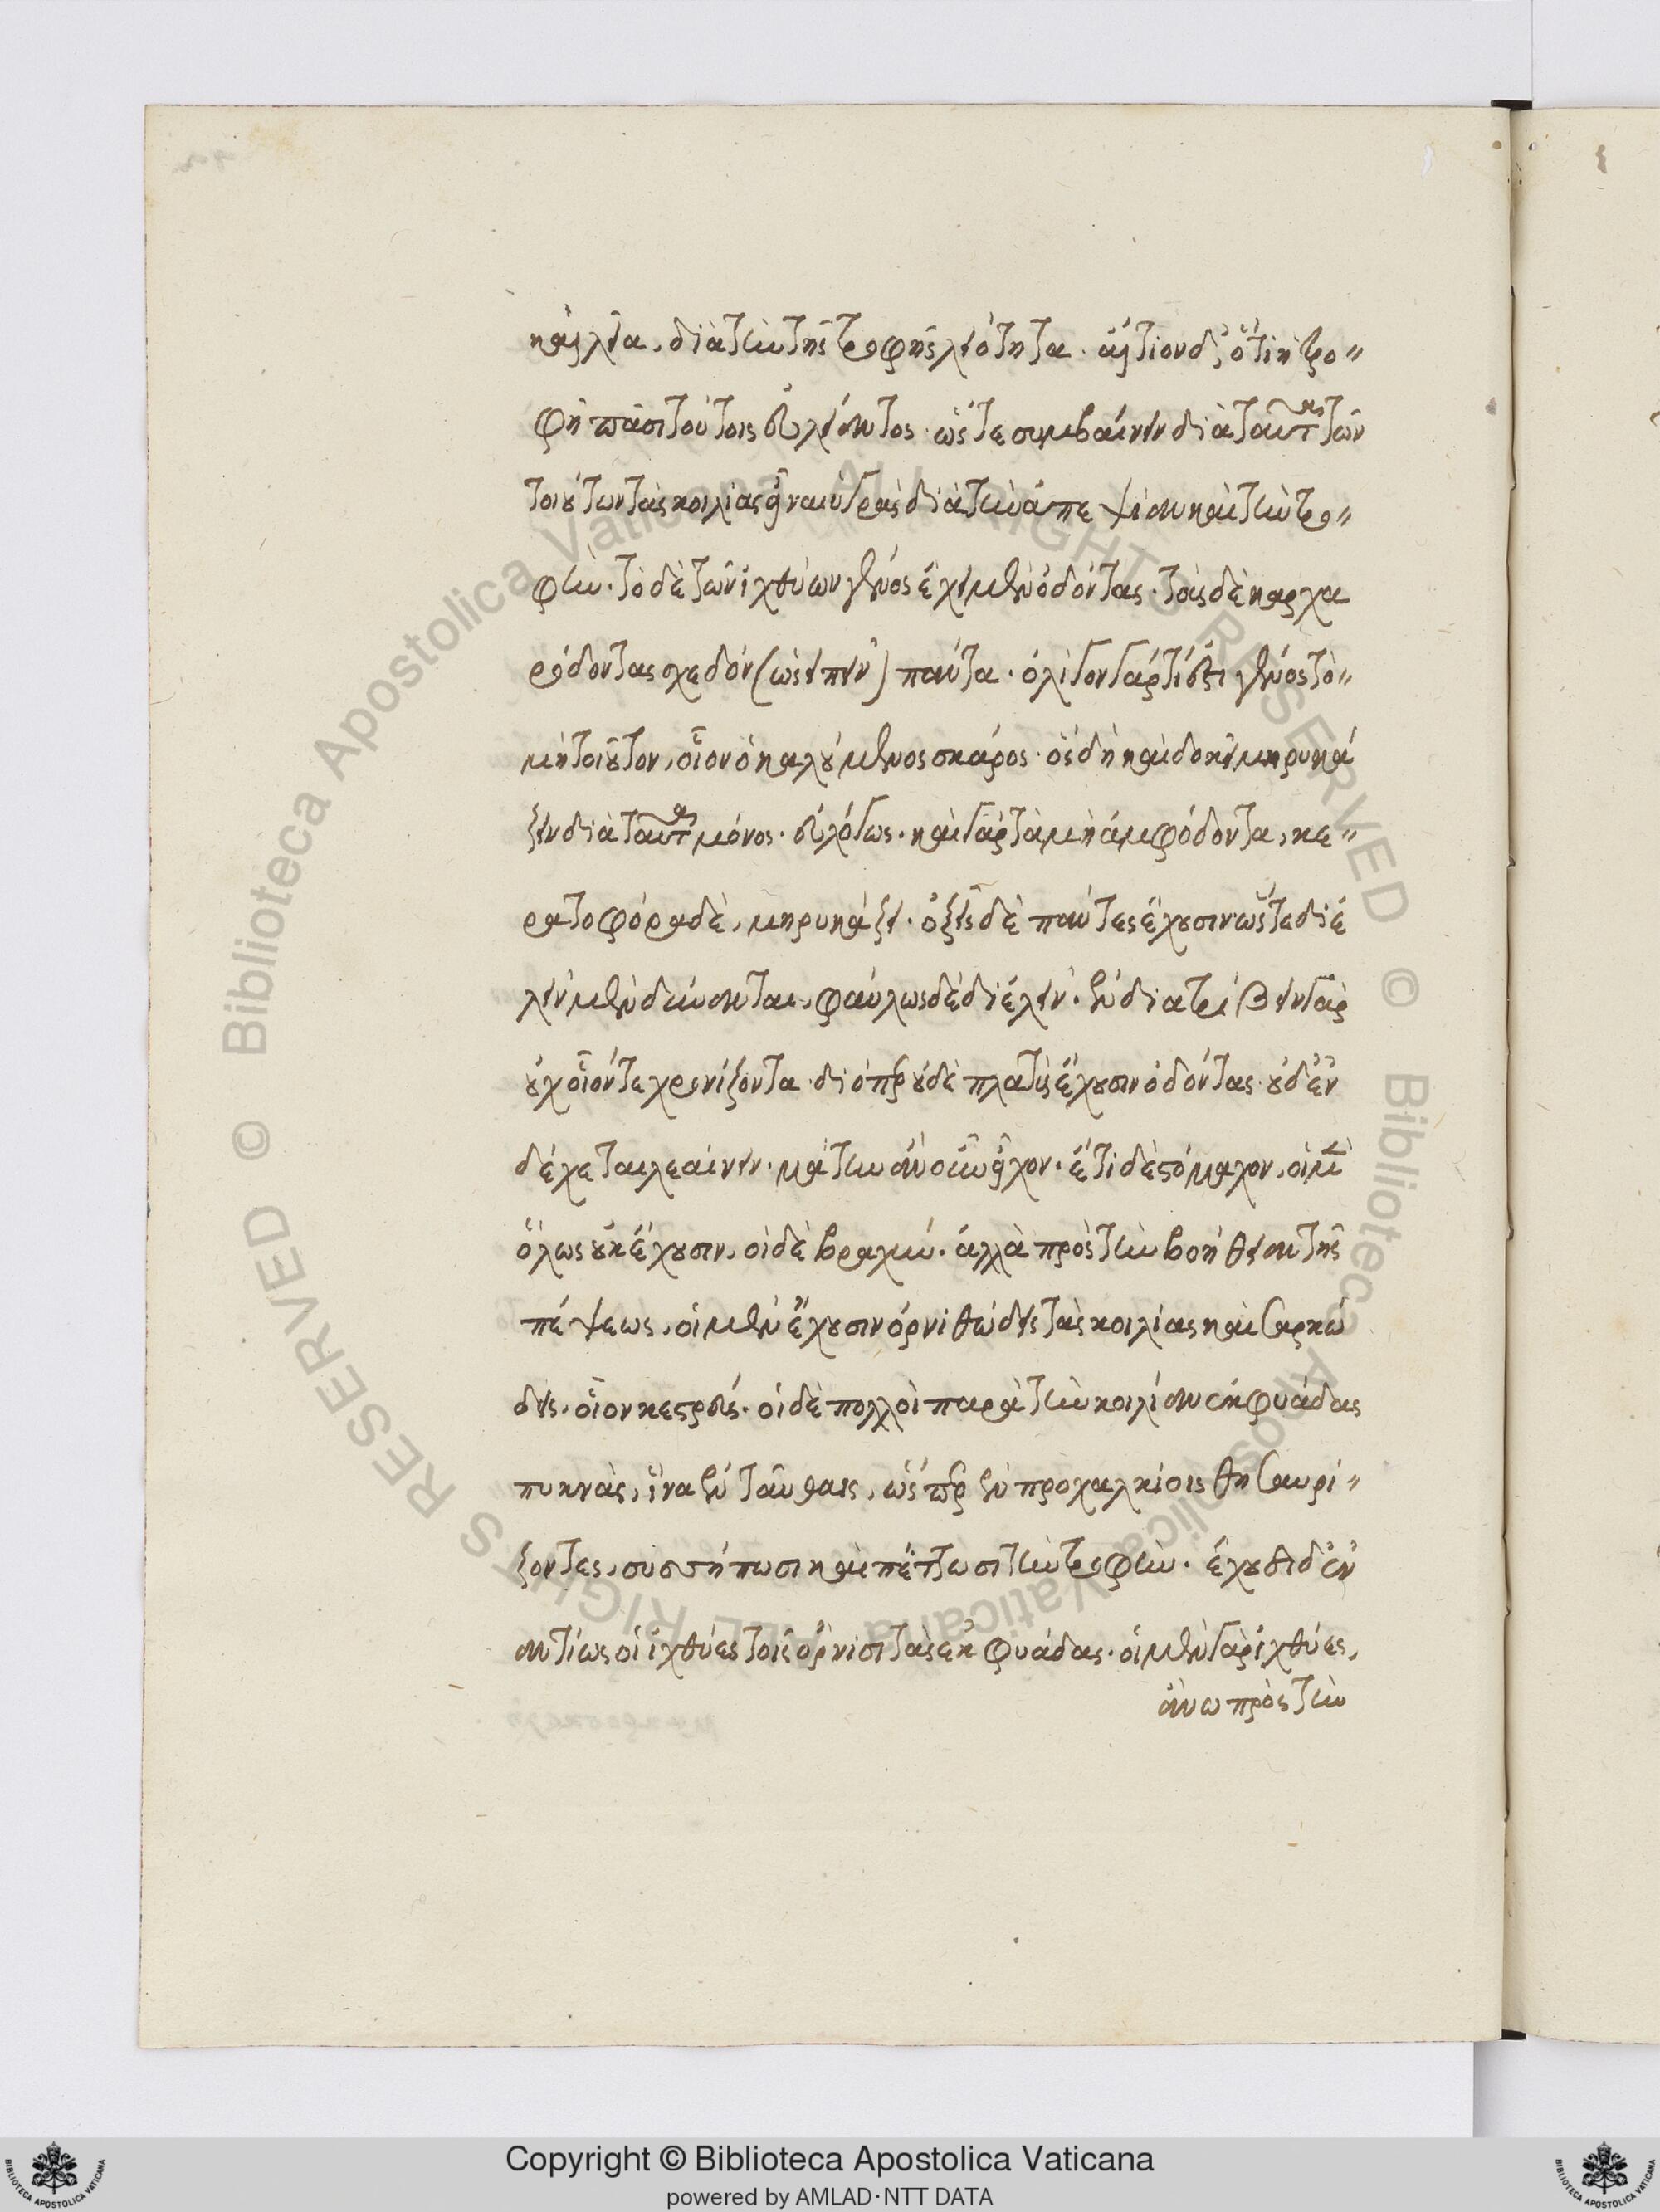 καὶ λεία, διὰ τὴν τῆς τροφῆς λειότητα. αἴτιον δ' ὅτι ἡ τρο"
φὴ πᾶσι τούτοις εὐλέαντος. ὥστε συμβαίνειν διὰ ταῦτα τῶν
τοιούτων τὰς κοιλίας εἶναι ὑγρὰς διὰ τὴν ἀπεψίαν καὶ τὴν τρο"
φήν. τὸ δὲ τῶν ἰχθύων γένος ἔχει μὲν ὀδόντας. τοὺς δὲ καρχα
ρόδοντας σχεδόν (ὡς εἰπεῖν) πάντα. ὀλίγον γάρ τί ἐστι γένος τὸ"
μὴ τοιοῦτον, οἷον ὁ καλούμενος σκάρος. ὃς δὴ καὶ δοκεῖ μηρυκά
ζειν διὰ ταῦτα μόνος. εὐλόγως. καὶ γὰρ τὰ μὴ ἀμφόδοντα, κε"
ρατοφόρα δὲ, μηρυκάζει. ὀξεῖς δὲ πάντες ἔχουσιν ὥστε διέ
λειν μὲν δύνανται, φαύλως δὲ διέλειν. ἐνδιατρίβειν γὰρ
οὐχ οἷόν τε χρονίζοντα. διόπερ οὐδὲ πλατεῖς ἔχουσιν ὀδόντας. οὐδ' ἐν
δέχεται λεαίνειν. μάτην ἂν οὖν εἶχον. ἔτι δὲ στόμαχον, οἱ μὲν
ὅλως οὐκ ἔχουσιν, οἱ δὲ βραχύν. ἀλλὰ πρὸς τὴν βοήθειαν τῆς
πέψεως, οἱ μὲν ἔχουσιν ὀρνιθώδεις τὰς κοιλίας καὶ σαρκώ
δεις. οἷον κεστρεύς. οἱ δὲ πολλοὶ παρὰ τὴν κοιλίαν ἐκφυάδας
πυκνάς, ἵνα ἐν ταύταις, ὥσπερ ἐν προχαλκίοις θησαυρί"
ζοντες, συσσήπωσι καὶ πέττωσι τὴν τροφήν. ἔχουσι δ' ἐν
αντίως οἱ ἰχθύες τοῖς ὄρνισι τὰς ἐκφυάδας. οἱ μὲν γὰρ ἰχθύες,
ἄνω πρὸς τὴν
Copyright © Biblioteca Apostolica Vaticana
powered by AMLAD·NTT DATA